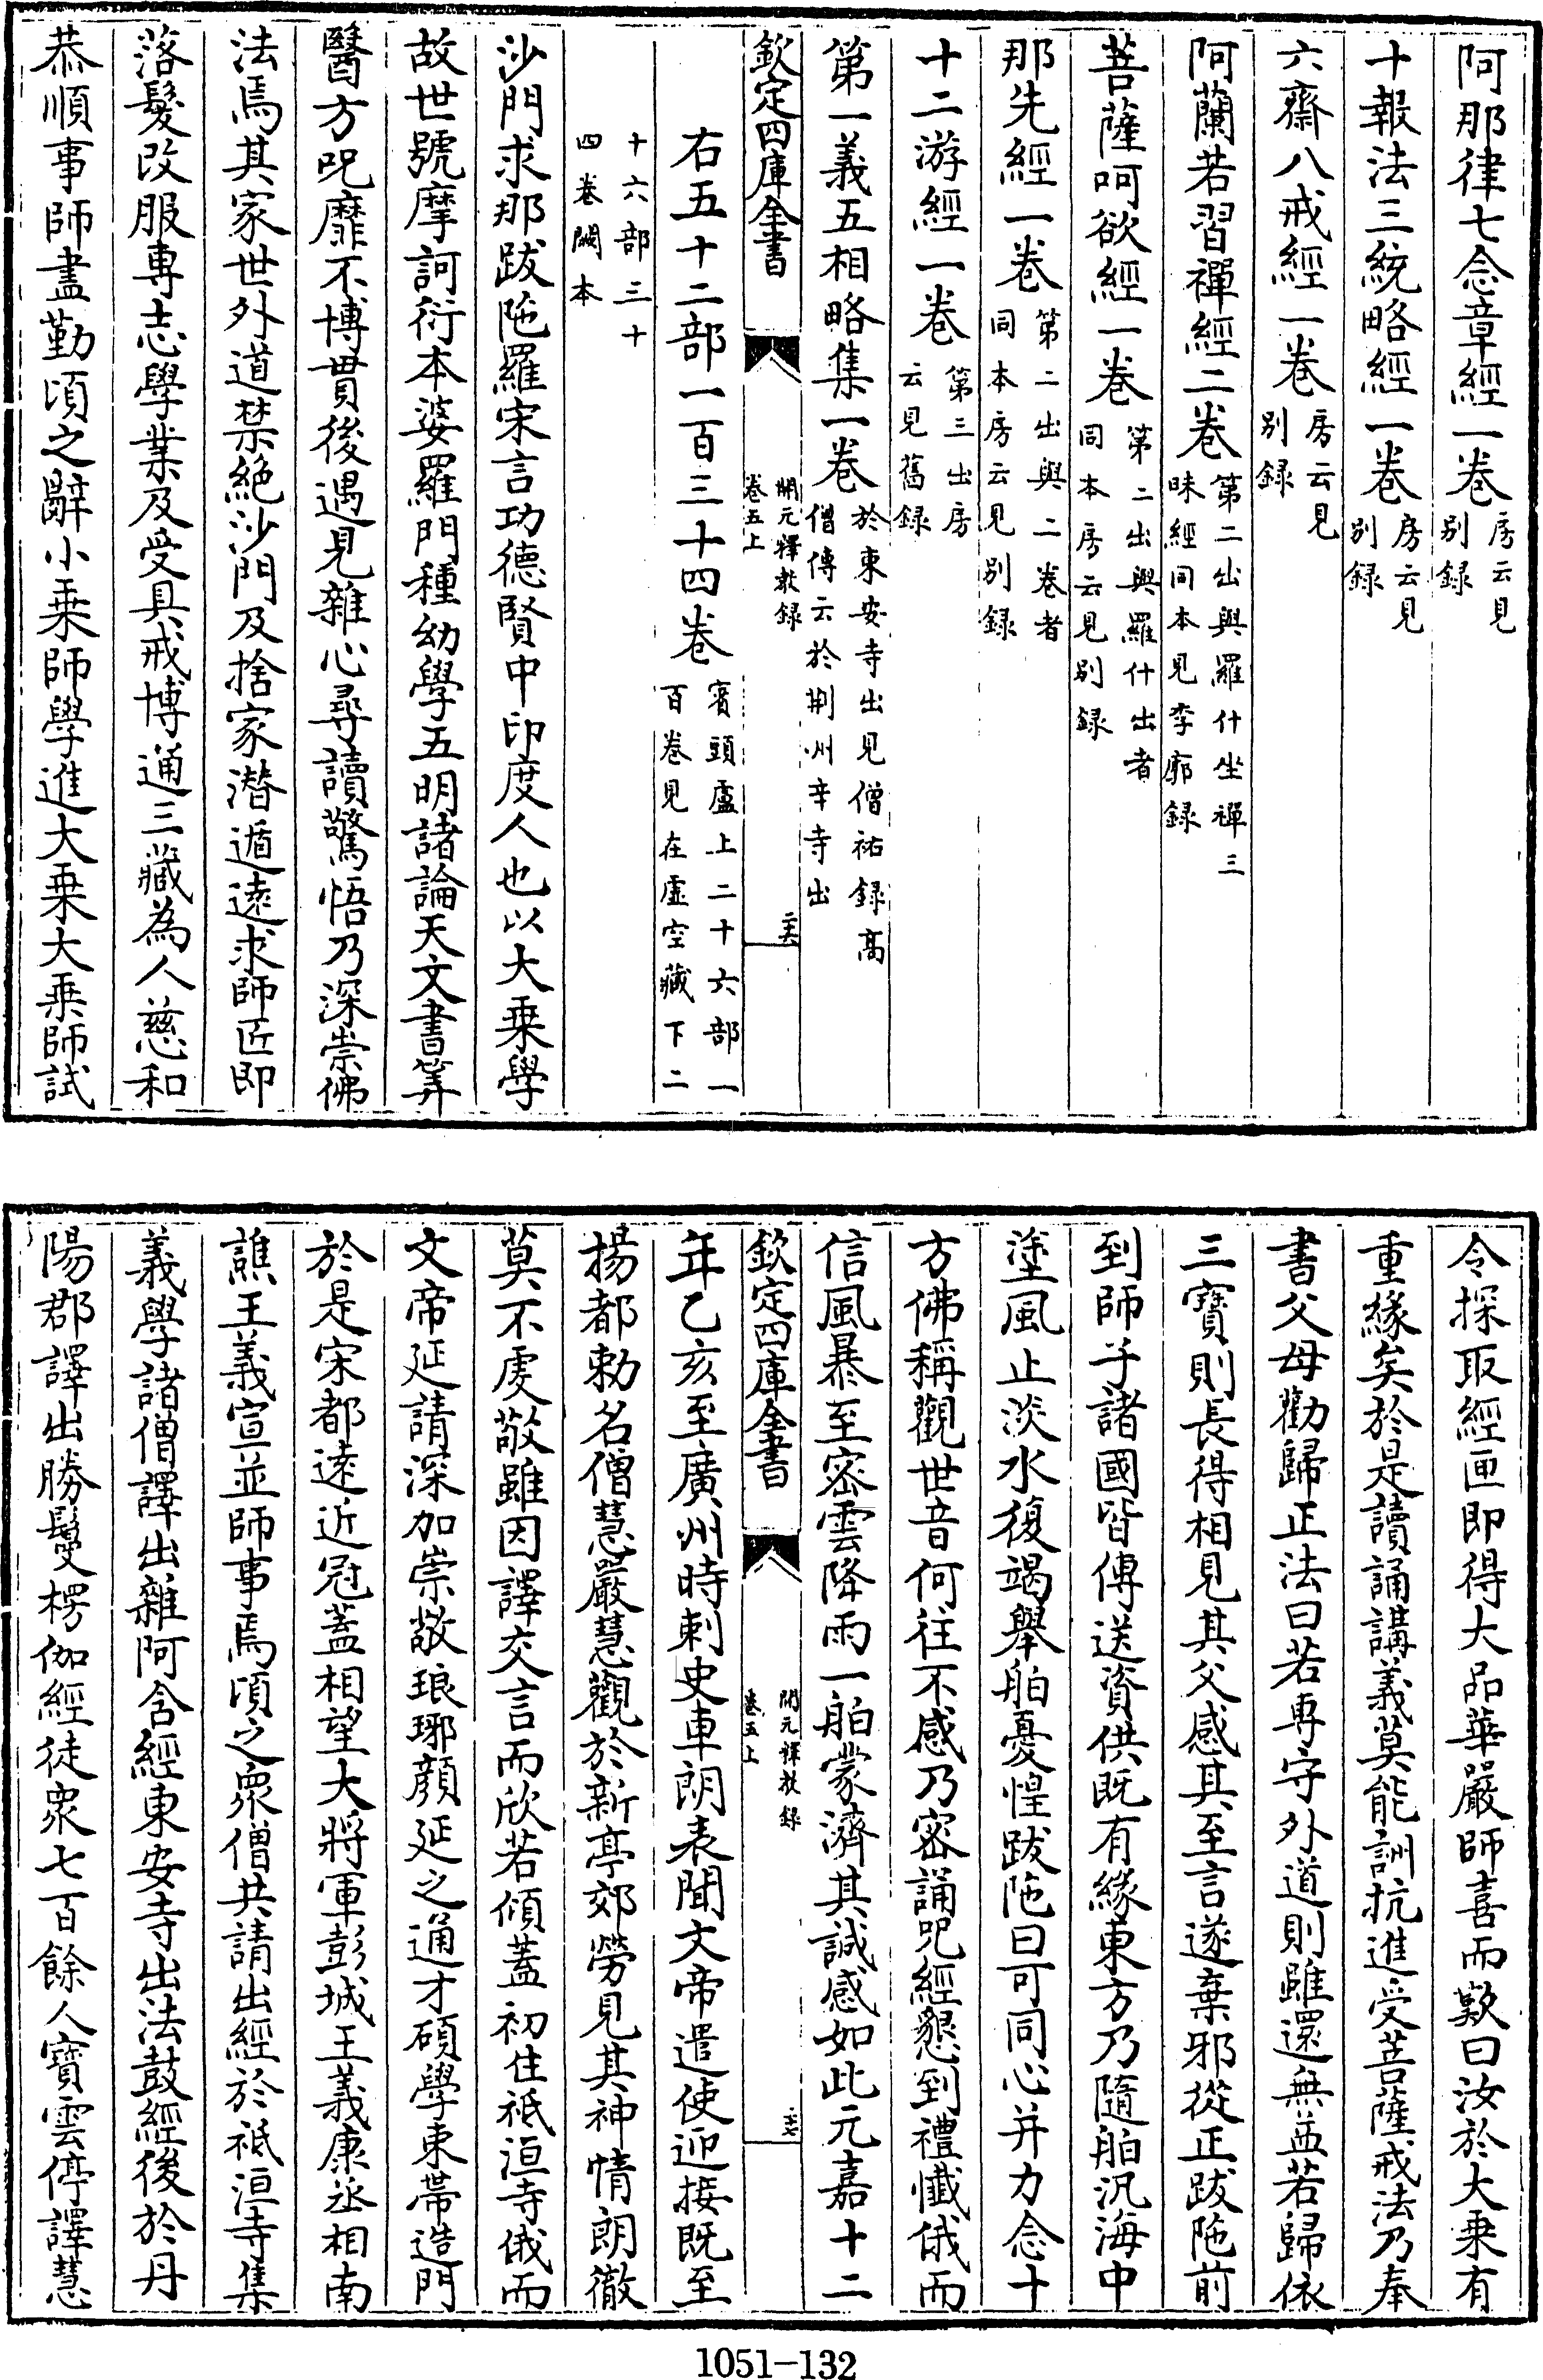 阿那律七念章經一卷房云見別録
十報法三統略經一卷房云見別録
六齋八戒經一卷房云見別録
阿蘭若習禪經二卷第二出與羅什坐禪三昧經同本見李廓録
菩薩呵欲經一卷第二出與羅什出者同本房云見別録
那先經一卷第二出與二卷者同本房云見別録
十二游經一卷第三出房云見舊録
第一義五相略集一卷於東安寺出見僧祐録髙僧傳云於荆州辛寺出
欽定四庫全書 開元釋教録卷五上 二六
右五十二部一百三十四卷賓頭盧上二十六部一百卷見在虚空藏下二
十六部三十四卷闕本
沙門求那跋陁羅宋言功德賢中印度人也以大乗學
故世號摩訶衍本婆羅門種幼學五明諸論天文書筭
醫方呪靡不博貫後遇見雜心尋讀驚悟乃深崇佛
法焉其家世外道禁絶沙門及捨家潛遁逺求師匠即
落髮改服專志學業及受具戒博通三藏為人慈和
恭順事師盡勤頃之辭小乗師學進大乗大乗師試
令採取經匣即得大品華嚴師喜而歎曰汝於大乗有
重緣矣於是讀誦講義莫能詶抗進受菩薩戒法乃奉
書父母勸歸正法曰若専守外道則雖還無益若歸依
三寳則長得相見其父感其至言遂棄邪從正跋陁前
到師子諸國皆傳送資供既有緣東方乃隨舶汎海中
塗風止淡水復竭舉舶憂惶跋陁曰可同心并力念十
方佛稱觀世音何往不感乃密誦呪經懇到禮懴俄而
信風暴至密雲降雨一舶蒙濟其誠感如此元嘉十二
欽定四庫全書 開元釋教録卷五上 二七
年乙亥至廣州時刺史車朗表聞文帝遣使迎接既至
揚都勅名僧慧嚴慧觀於新亭郊勞見其神情朗徹
莫不䖍敬雖因譯交言而欣若傾蓋初住祇洹寺俄而
文帝延請深加崇敬琅琊顔延之通才碩學束帶造門
於是宋都逺近冠蓋相望大將軍彭城王義康丞相南
譙王義宣並師事焉頃之衆僧共請出經於祇洹寺集
義學諸僧譯出雜阿含經東安寺出法鼓經後於丹
陽郡譯出勝鬘楞伽經徒衆七百餘人寳雲傳譯慧
1051-132